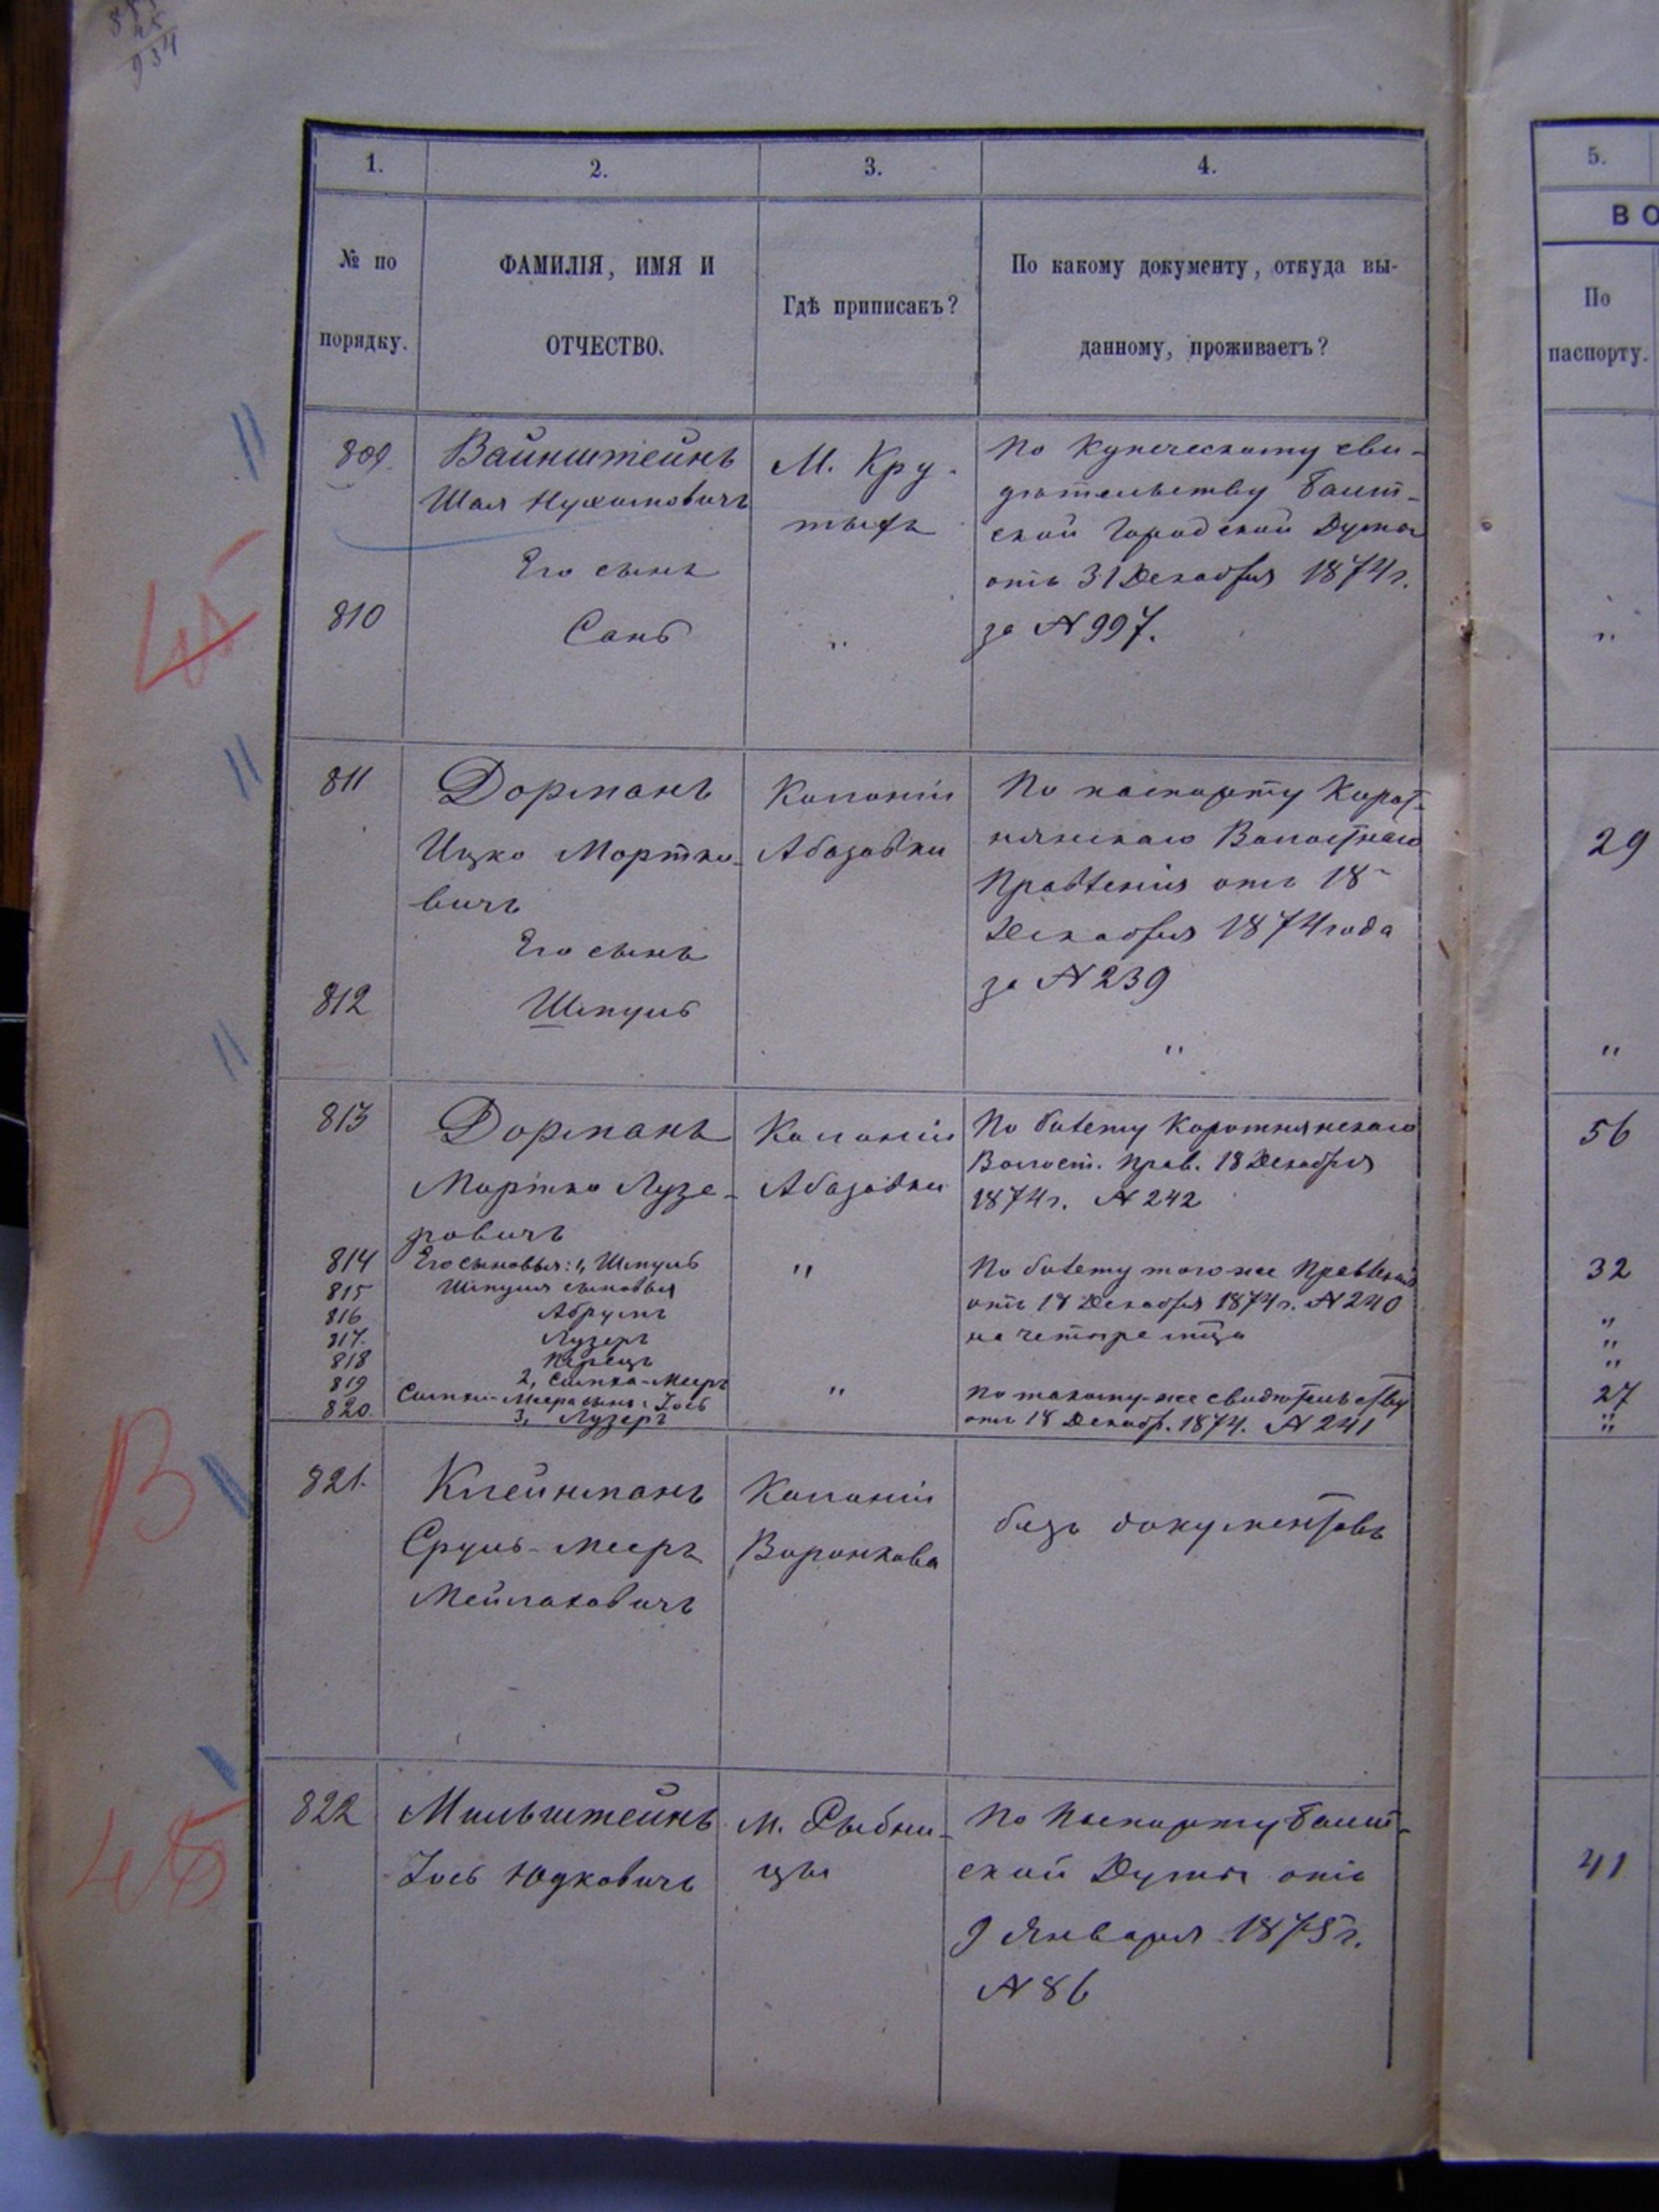 934
1. 2. 3. 4. 5.
ВО
№ по
порядку.
ФАМИЛІЯ, ИМЯ И
ОТЧЕСТВО.
Гдѣ приписанъ?
По какому документу, откуда вы-
данному, проживаетъ?
По
паспорту.
809. Вайнштейнъ
Шая Нухимовичъ
Его сынъ
810 Сань
М. Кру-
тыхъ
„
По Купеческому сви-
дѣтельству Балт-
ской Городской Думы
отъ 31 Декабря 1874 г.
за № 997.
„
811 Дорманъ
Ицко Мортко-
вичъ
Его сынъ
812 Шмуль
Колоніи
Абазовки
По паспорту Корот-
нянскаго Волостнаго
Правленія отъ 18
Декабря 1874 года
за № 239
„
29
„
813 Дорманъ
Мортко Лузе-
ровичъ
Колоніи
Абазовки
По билету Коротнянскаго
Волост. Прав. 18 Декабря
1874 г. № 242
56
814 Его сыновья: 1, Шмуль
815 Шмуля сыновья
816 Абрумъ
817. Лузеръ
818 Перецъ
819 2, Симха-Мееръ
Симхи-Меера сынъ: Іось
820. 3, Лузеръ
„
„
По билету того же Правленія
отъ 18 Декабря 1874 г. № 240
на четыре лица
По такому-же свидѣтельству
отъ 18 Декабр. 1874. № 241
32
„
„
„
27
„
821. Клейнманъ
Сруль-Мееръ
Мейлаховичъ
Колоніи
Воронкова
безъ документовъ
822 Мильштейнъ
Іось Юдковичъ
М. Рыбни-
цы
По Паспорту Балт-
ской Думы отъ
9 Января 1875 г.
№ 86
41
В